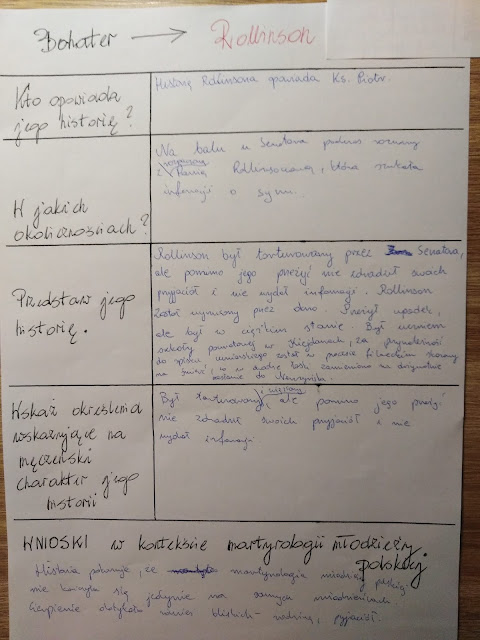 Bohater → Rollinson
Kto opowiada
jego historię?
Historię Rollinsona opowiada Ks. Piotr.
W jakich
okolicznościach?
Na balu u Senatora podczas rozmowy
z Panią Rollinsonową, która szukała
informacji o synu.
Przedstaw jego
historię.
Rollinson był torturowany przez Senatora,
ale pomimo jego przeżyć nie zdradził swoich
przyjaciół i nie wydał informacji. Rollinson
został wyrzucony przez okno. Przeżył upadek,
ale był w ciężkim stanie. Był uczniem
szkoły powiatowej w Kiejdanach, za przynależność
do spisku został w procesie skazany
na śmierć, zamieniono na dożywotnie
zesłanie do Nerczyńska.
Wskaż określenia
wskazujące na
męczeński
charakter jego
historii
Był torturowany i więziony, ale pomimo jego przeżyć
nie zdradził swoich przyjaciół i nie
wydał informacji
WNIOSKI w kontekście martyrologii młodzieży
polskiej.
Historia pokazuje, że martyrologia młodzieży polskiej
nie kończyła się jedynie na samych
Cierpienie dotykało również bliskich - rodzinę, przyjaciół.